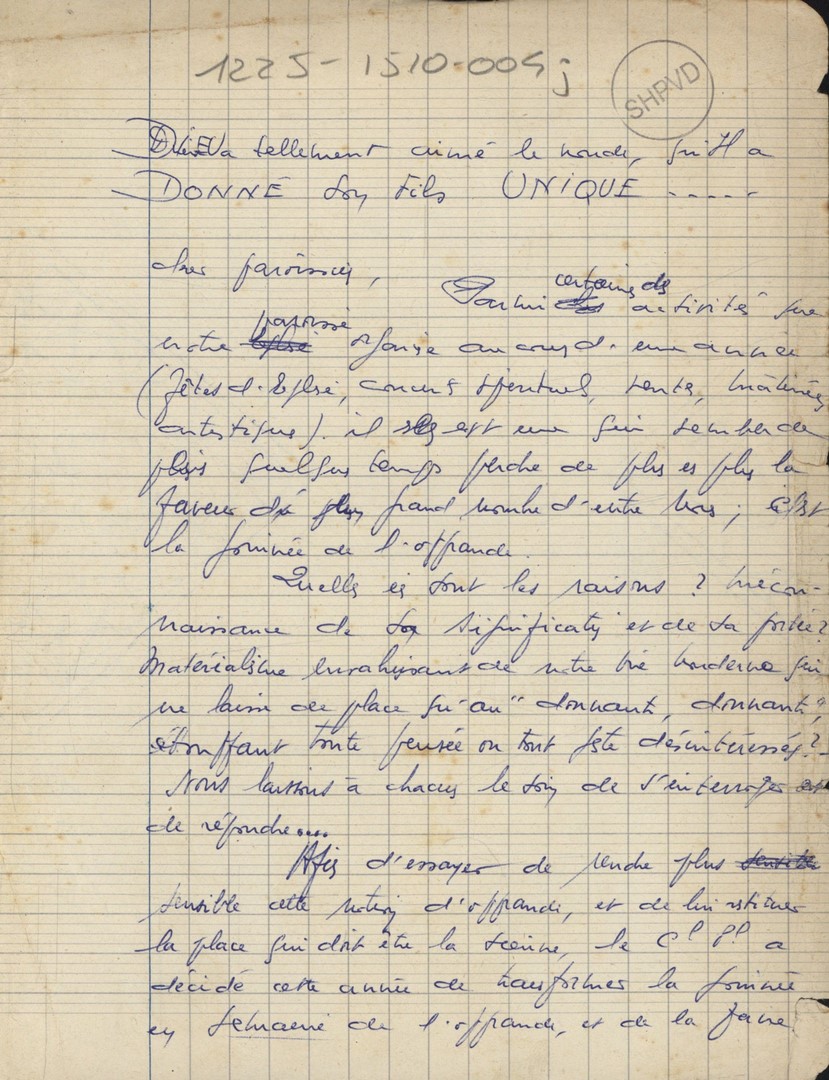 1225-1510-004j
SHPVD
DIEU a tellement aimé le monde, qu'Il a
DONNÉ son Fils UNIQUE -----
cher paroissien,
certaines des
Parmi activités que
paroisse
notre organise au cours d'une année
(fêtes d'Eglise, concert spirituel, vente, matinées
artistique). il est une qui semble de
puis quelque temps perdre de plus en plus la
faveur du plus grand nombre d'entre nous ; c'est
la journée de l'offrande.
Quelles en sont les raisons ? Mécon-
naissance de sa signification et de sa portée ?
Matérialisme envahissant de notre vie moderne qui
ne laisse de place qu'au "donnant, donnant",
étouffant toute pensée ou tout geste désintéressés ?
Nous laissons à chacun le soin de s'interroger et
de répondre....
Afin d'essayer de rendre plus
sensible cette notion d'offrande, et de lui restituer
la place qui doit être la sienne, le Cl Pl a
décidé cette année de transformer la journée
en semaine de l'offrande, et de la faire